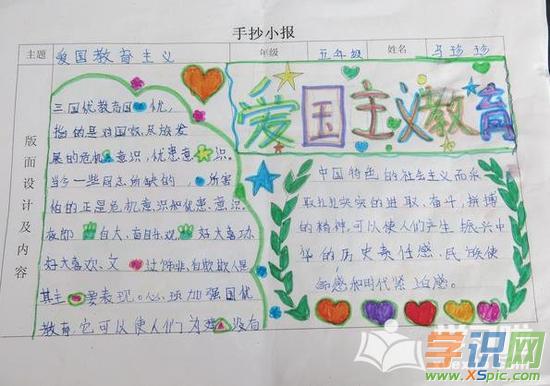 手抄小报
主题 爱国教育主义 年级 五年级 姓名 马珍珍
版面设计及内容
爱国主义教育
三国优教育国优,
指的是对国家及放发
展的危机意识,忧患意识。
当今一些同志所缺的,所害
怕的正是危机意识和忧患意识。
夜郎自大、盲目乐观 好大喜功
好大喜欢、文过饰非,自欺欺人是
其主要表现。心须加强国优
教育,它可以使人们为 没有
中国特色的社会主义而采
取扎扎实实的进取、奋斗、拼搏
的精神,可以使人们产生振兴中
华的历史责任感,民族使
命感和时代紧迫感。
学识网
www.XSpic.com